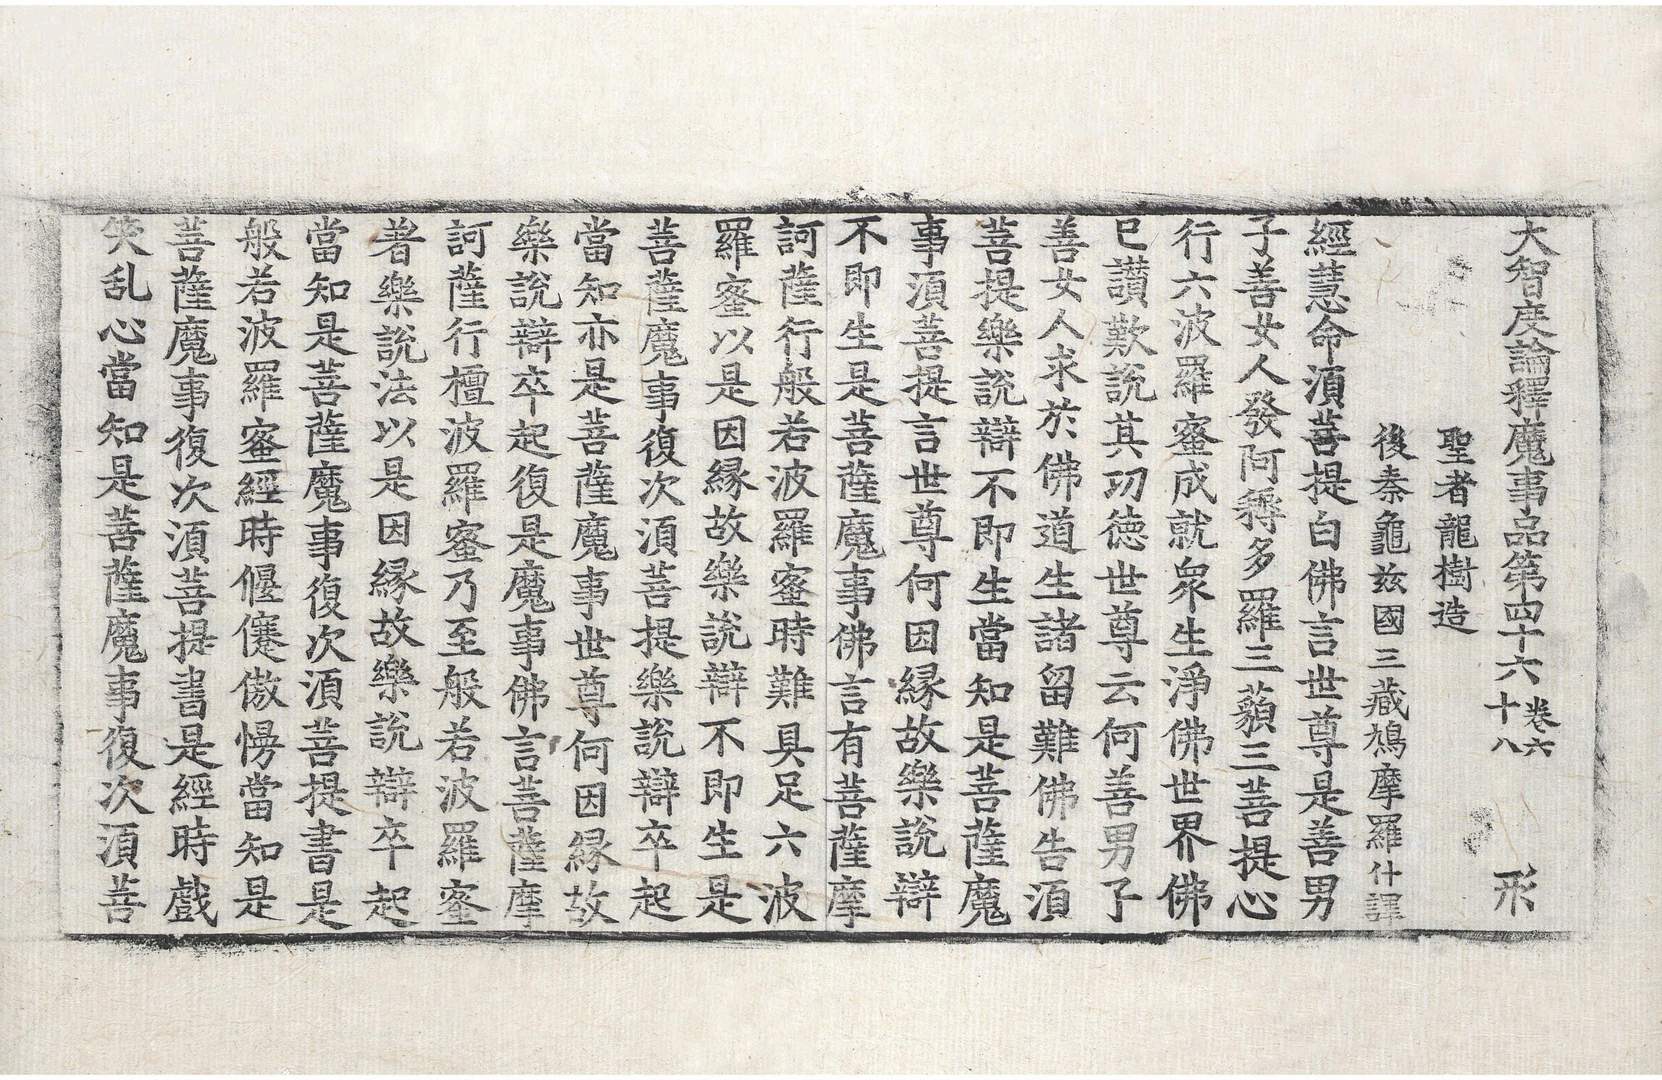 大智度論釋魔事品第四十六 卷六十八 形
聖者龍樹造
後秦龜兹國三藏鳩摩羅什譯
經慧命湏菩提白佛言世尊是善男
子善女人發阿耨多羅三藐三菩提心
行六波羅蜜成就衆生淨佛世界佛
已讃歎說其功德世尊云何善男子
善女人求於佛道生諸留難佛告湏
菩提樂說辯不即生當知是菩薩魔
事湏菩提言世尊何因縁故樂說辯
不即生是菩薩魔事佛言有菩薩摩
訶薩行般若波羅蜜時難具足六波
羅蜜以是因縁故樂說辯不即生是
菩薩魔事復次湏菩提樂說辯卒起
當知亦是菩薩魔事世尊何因縁故
樂說辯卒起復是魔事佛言菩薩摩
訶薩行檀波羅蜜乃至般若波羅蜜
著樂說法以是因縁故樂說辯卒起
當知是菩薩魔事復次湏菩提書是
般若波羅蜜經時偃蹇傲慢當知是
菩薩魔事復次湏菩提書是經時戲
笑乱心當知是菩薩魔事復次湏菩